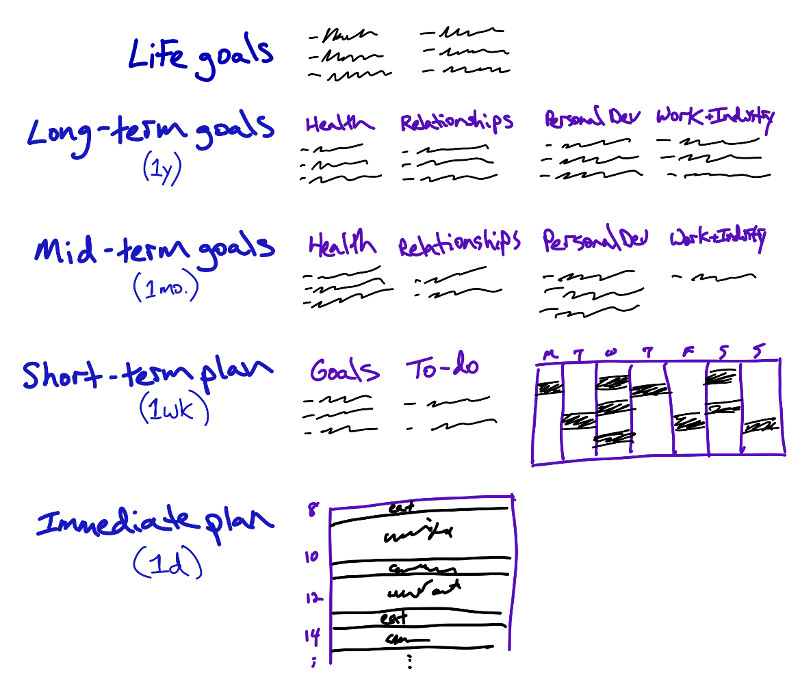 Life goals
Long-term goals
(1y)
Health Relationships Personal Dev Work+Industry
Mid-term goals
(1mo.)
Health Relationships Personal Dev Work+Industry
Short-term plan
(1wk)
Goals To-do
M T W T F S S
Immediate plan
(1d)
8 eat
10
12
eat
14